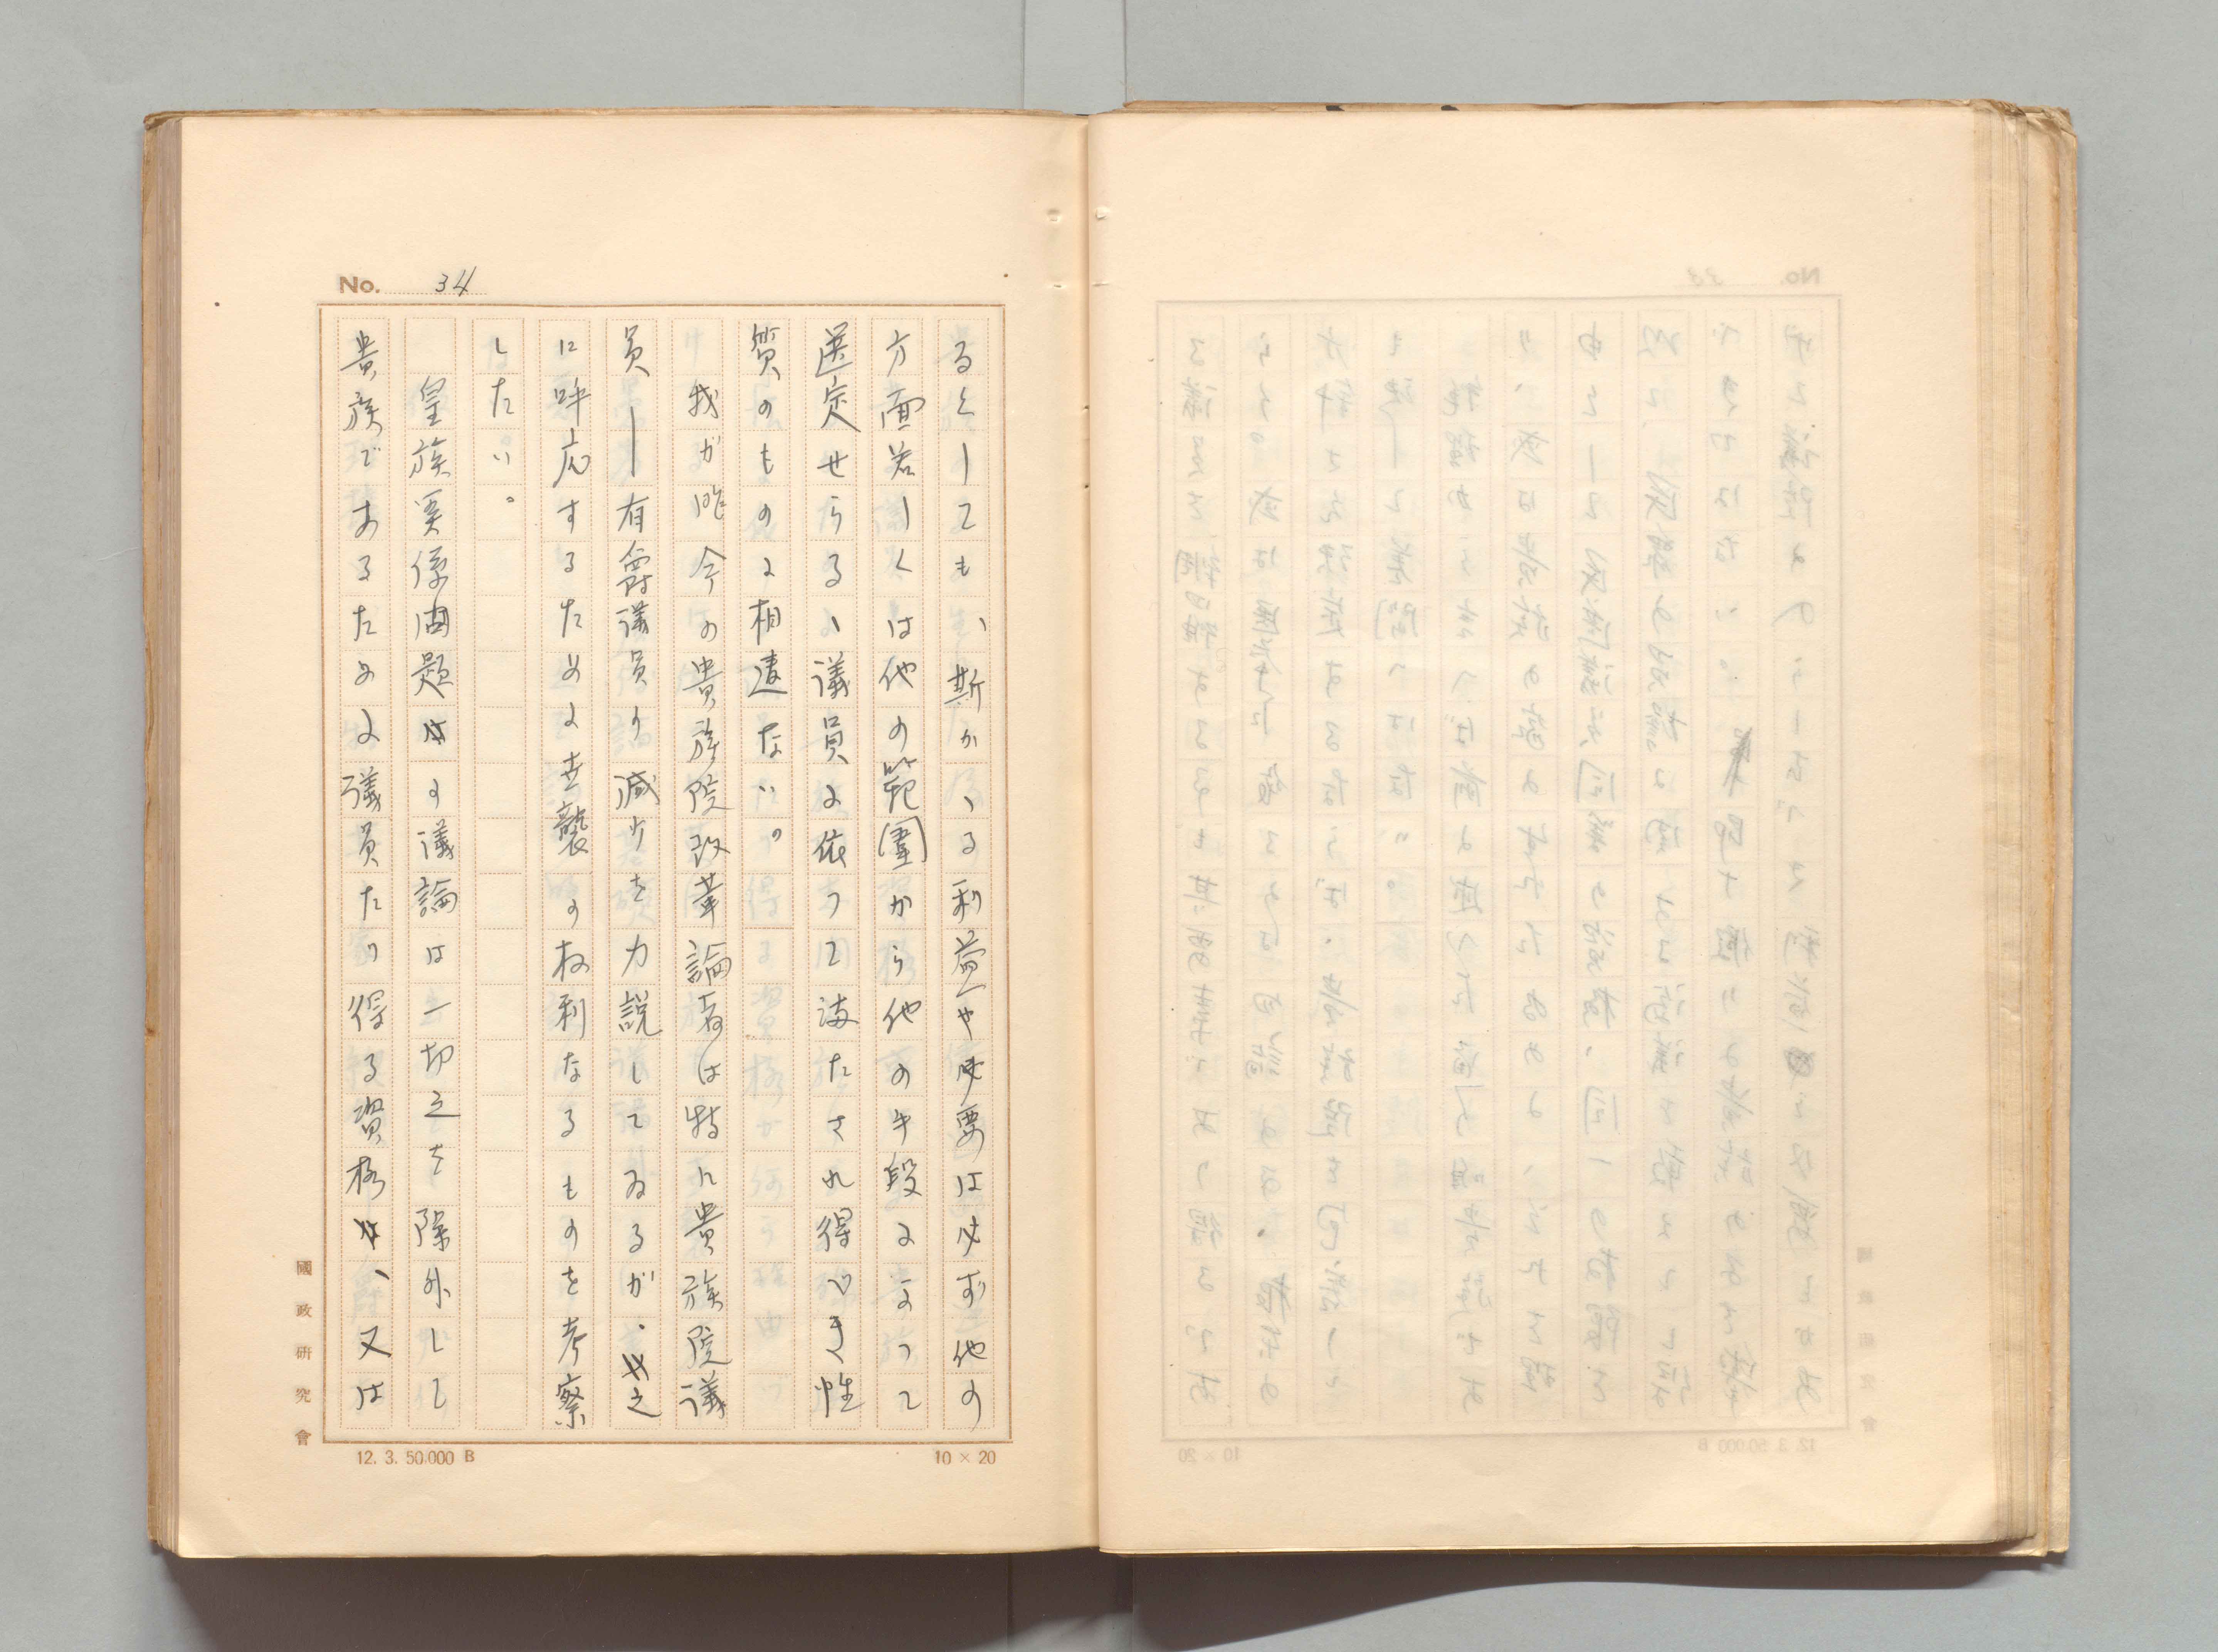 No. 34
るとしても、斯かゝる利益や必要は必ず他の
方面若しくは他の範囲から他の手段によつて
選定せらるゝ議員に依つて満たされ得べき性
質のものに相違ない。
我が昨今の貴族院改革論者は特に貴族院議
員―有爵議員の減少を力説してゐるが、之
に呼応するために世襲の権利なるものを考察
したい。
皇族関係問題の議論は一切之を除外して
貴族であるために議員たり得る資格、又は
國政研究會
12. 3. 50,000 B
10 × 20